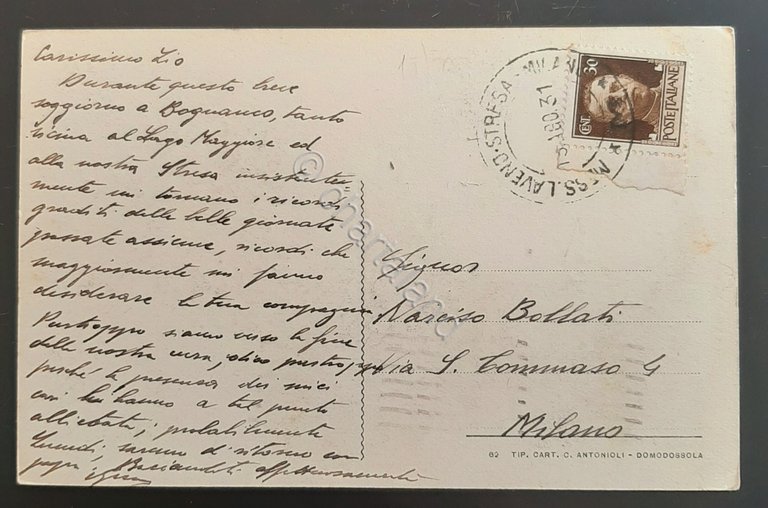 Carissimo Zio
Durante questo breve
soggiorno a Bognanco, tanto
vicina al Lago Maggiore ed
alla nostra Stresa insistente-
mente mi tornano i ricordi
graditi delle belle giornate
passate assieme, ricordi che
maggiormente mi fanno
desiderare la tua compagnia
Purtroppo siamo verso la fine
della nostra cura, dico nostra,
perché la presenza dei miei
cari ha a tal punto
probabilmente
Lunedì, saremo di ritorno con
papà. Baciandoti affettuosamente
MESS. LAVENO-STRESA-MILANO
AGO.31
CENT 30
POSTE ITALIANE
Signor
Narciso Bollati
Via S. Tommaso 4
Milano
62 TIP. CART. C. ANTONIOLI - DOMODOSSOLA
© chartaland